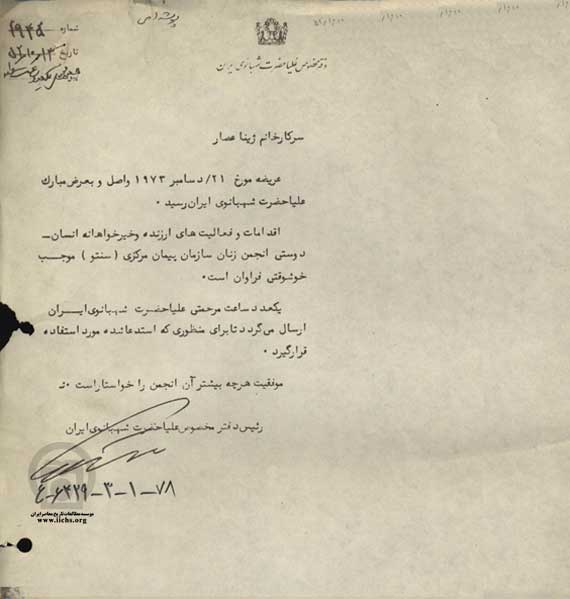 شماره
تاریخ
دفتر مخصوص علیاحضرت شهبانوی ایران
سرکار خانم ژینا عصار
عریضه مورخ ۲۱/دسامبر ۱۹۷۳ واصل و بعرض مبارك
علیاحضرت شهبانوی ایران رسید ۰
اقدامات و فعالیت های ارزنده وخیرخواهانه انسان–
دوستی انجمن زنان سازمان پیمان مرکزی ( سنتو ) موجب
خوشوقتی فراوان است۰
یکعدد ساعت مرحمتی علیاحضرت شهبانوی ایران
ارسال میگردد تا برای منظوری که استدعا شده مورد استفاده
قرار گیرد ۰
موفقیت هرچه بیشتر آن انجمن را خواستار است
رئیس دفتر مخصوص علیاحضرت شهبانوی ایران
۴-۶۴۲۹-۳-۱-۷۸
موسسه مطالعات تاریخ معاصر ایران
www.iichs.org